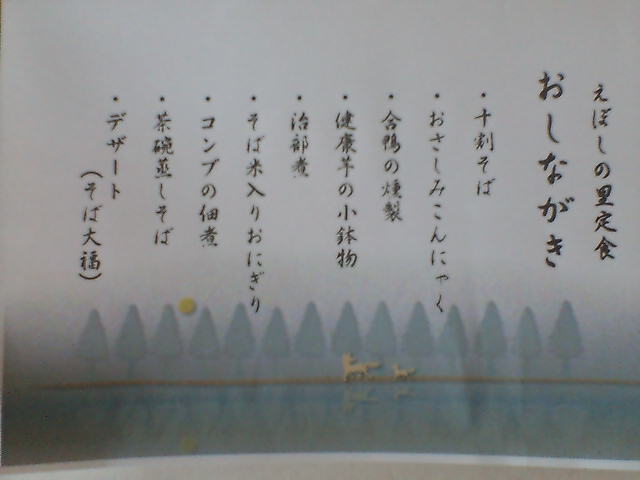 えぼしの里定食
おしながき
・十割そば
・おさしみこんにゃく
・合鴨の燻製
・健康芋の小鉢物
・治部煮
・そば米入りおにぎり
・コンブの佃煮
・茶碗蒸しそば
・デザート
（そば大福）